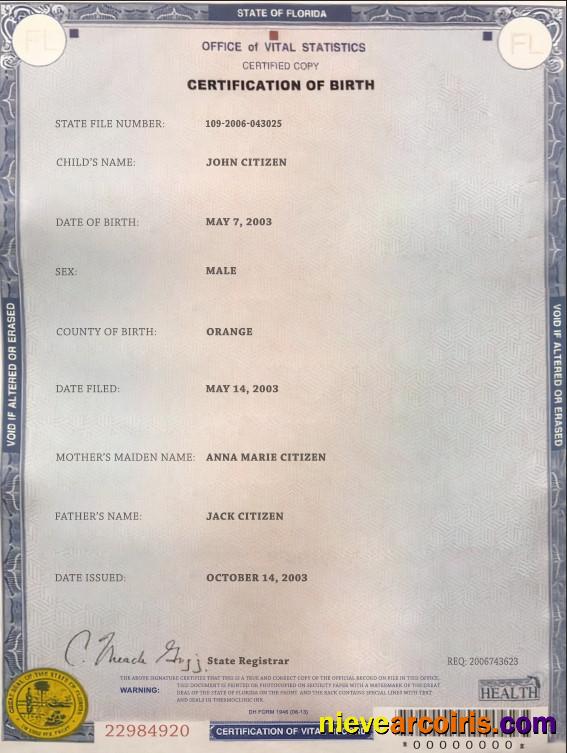 STATE OF FLORIDA
FL
FL
OFFICE of VITAL STATISTICS
CERTIFIED COPY
CERTIFICATION OF BIRTH
STATE FILE NUMBER: 109-2006-043025
CHILD'S NAME: JOHN CITIZEN
DATE OF BIRTH: MAY 7, 2003
SEX: MALE
COUNTY OF BIRTH: ORANGE
DATE FILED: MAY 14, 2003
MOTHER'S MAIDEN NAME: ANNA MARIE CITIZEN
FATHER'S NAME: JACK CITIZEN
DATE ISSUED: OCTOBER 14, 2003
VOID IF ALTERED OR ERASED
VOID IF ALTERED OR ERASED
State Registrar
REQ: 2006743623
THE ABOVE SIGNATURE CERTIFIES THAT THIS IS A TRUE AND CORRECT COPY OF THE OFFICIAL RECORD ON FILE IN THIS OFFICE.
WARNING: THIS DOCUMENT IS PRINTED OR PHOTOCOPIED ON SECURITY PAPER WITH A WATERMARK OF THE GREAT
SEAL OF THE STATE OF FLORIDA ON THE FRONT, AND THE BACK CONTAINS SPECIAL LINES WITH TEXT
AND SEALS IN THERMOCHROMIC INK.
HEALTH
DH FORM 1946 (06-13)
22984920
CERTIFICATION OF VITAL RECORD
nievearcoiris.com
*00000000*